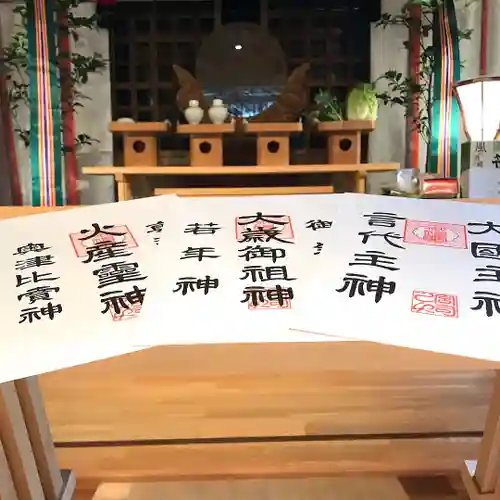 大國主神
言代主神
御
大歳御祖神
若年神
火産霊神
奥津比賣神